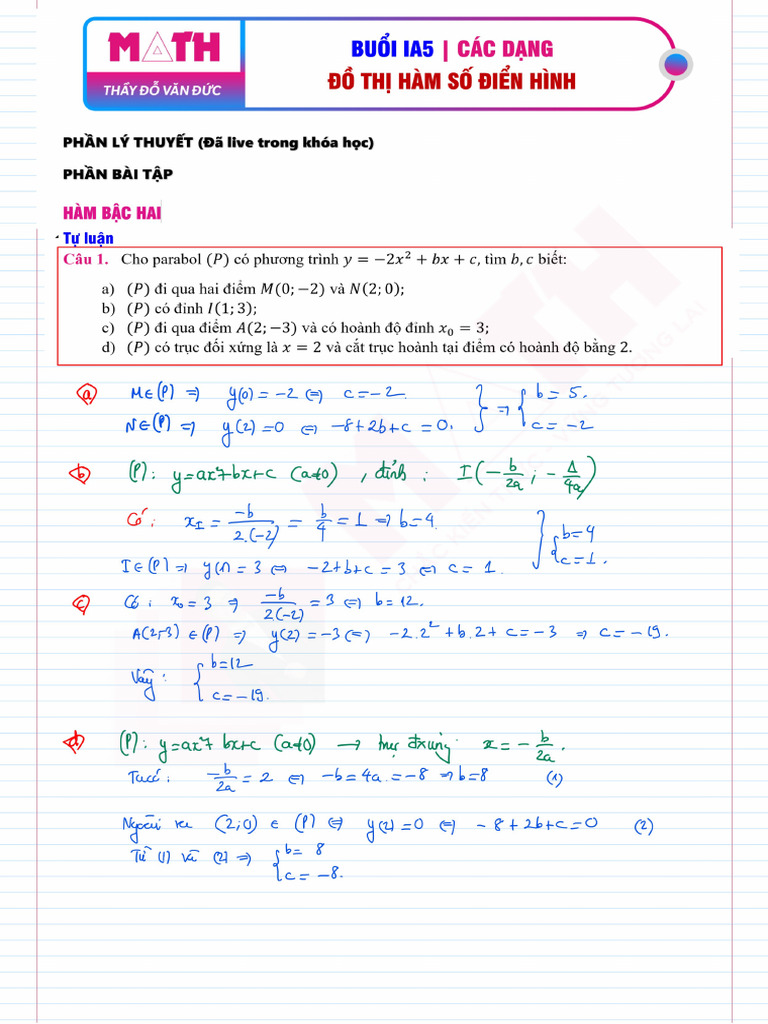 MATH
THẦY ĐỖ VĂN ĐỨC
BUỔI IA5 | CÁC DẠNG
ĐỒ THỊ HÀM SỐ ĐIỂN HÌNH
PHẦN LÝ THUYẾT (Đã live trong khóa học)
PHẦN BÀI TẬP
HÀM BẬC HAI
Tự luận
Câu 1. Cho parabol (P) có phương trình y = −2x² + bx + c, tìm b, c biết:
a) (P) đi qua hai điểm M(0; −2) và N(2; 0);
b) (P) có đỉnh I(1; 3);
c) (P) đi qua điểm A(2; −3) và có hoành độ đỉnh x₀ = 3;
d) (P) có trục đối xứng là x = 2 và cắt trục hoành tại điểm có hoành độ bằng 2.
a) M∈(P) ⇒ y(0) = −2 ⇔ c = −2.
N∈(P) ⇒ y(2) = 0 ⇔ −8 + 2b + c = 0. } ⇒ { b = 5. c = −2
b) (P): y = ax² + bx + c (a≠0), đỉnh: I(−b/2a; −Δ/4a)
Có: x_I = −b/2.(−2) = b/4 = 1 ⇒ b = 4.
I∈(P) ⇒ y(1) = 3 ⇔ −2 + b + c = 3 ⇔ c = 1. } { b = 4 c = 1.
c) Có: x₀ = 3 ⇒ −b/2(−2) = 3 ⇔ b = 12.
A(2;−3) ∈ (P) ⇒ y(2) = −3 ⇔ −2.2² + b.2 + c = −3 ⇒ c = −19.
Vậy: { b = 12 c = −19.
d) (P): y = ax² + bx + c (a≠0) → trục đxứng: x = −b/2a.
Ta có: −b/2a = 2 ⇔ −b = 4a = −8 ⇒ b = 8 (1)
Ngoài ra (2;0) ∈ (P) ⇔ y(2) = 0 ⇔ −8 + 2b + c = 0 (2)
Từ (1) và (2) ⇒ { b = 8 c = −8.